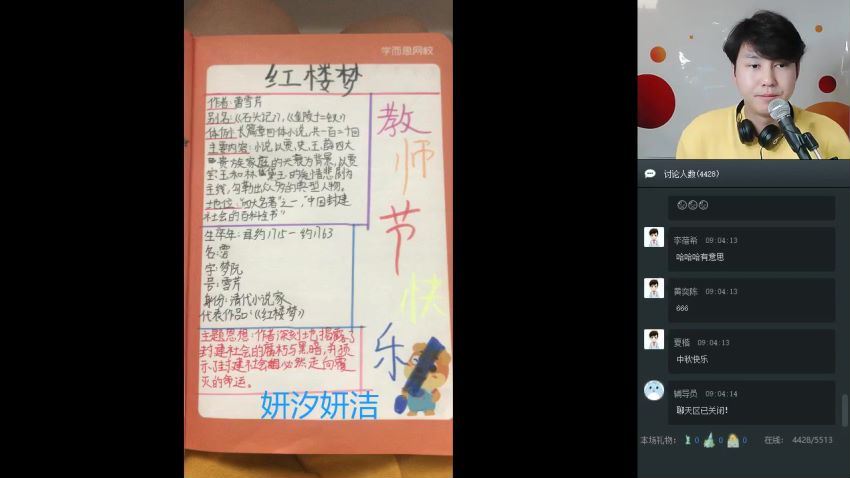 学而思网校
红楼梦
作者:曹雪芹
别名:《石头记》,《金陵十二钗》
体例:长篇章回体小说,共一百二十回
主要内容:小说以贾,史,王,薛四大
贵族家庭的兴衰为背景,以贾
宝玉和林黛玉的爱情悲剧为
主线,勾勒出众多的典型人物。
地位:"四大名著"之一,"中国封建
社会的百科全书"
生卒年:且约1715-约1763
名:霑
字:梦阮
号:雪芹
身份:清代小说家
代表作品:《红楼梦》
主题思想:作者深刻地揭露了
封建社会的腐朽与黑暗,并预
示了封建社会必然走向覆
灭的命运。
教师节快乐
妍汐妍洁
讨论人数(4428)
李蕴希 09:04:13
哈哈哈有意思
黄奕陈 09:04:13
666
夏楷 09:04:13
中秋快乐
辅导员 09:04:14
聊天区已关闭!
本场礼物: 0 0 0 在线: 4428/5513